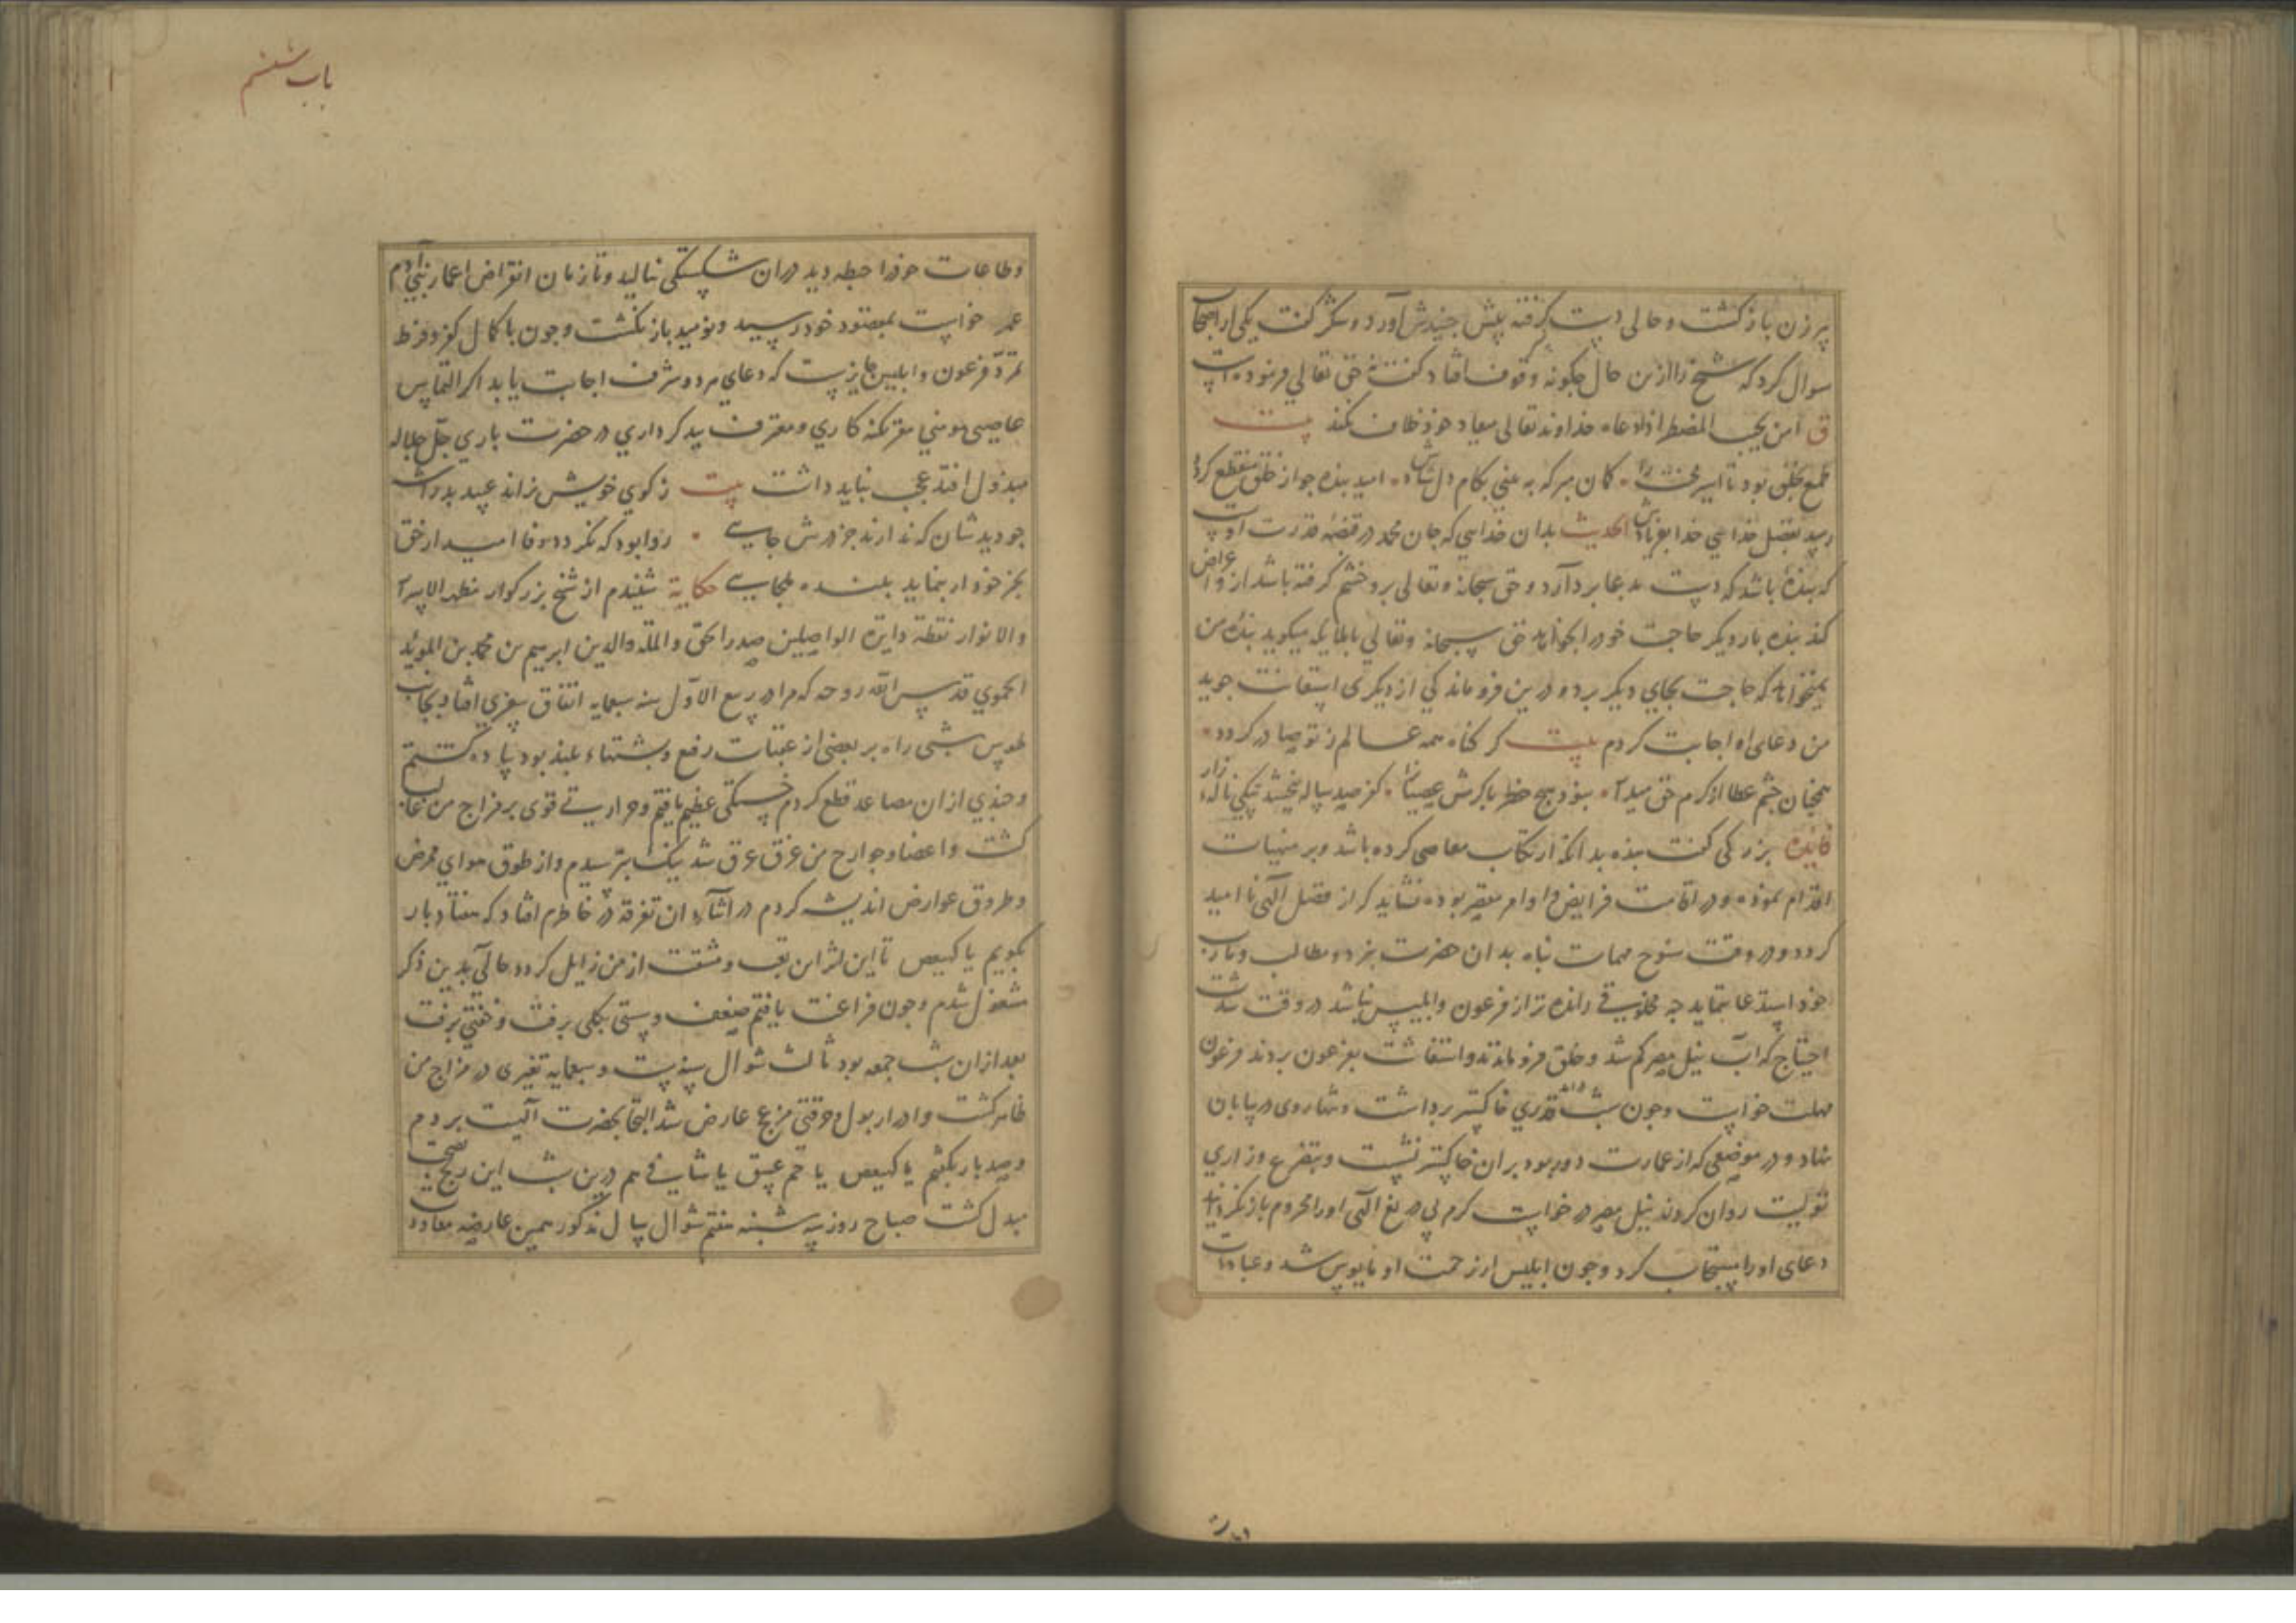 پیر زن باز گشت و حالی دست گرفته پیش جنیدش آورد و شکر گفت یکی از اصحاب
سوال کرد که شیخ را ازین حال چگونه وقوف افتاد گفت حق تعالی فرموده است
ق امن یجیب المضطر اذا دعاه خداوند تعالی میعاد خود خلاف نکند بیت
طمع بخلق بود تا اسیر محنت را کمان مبر که به بینی بکام دل شادش امید بنده جو از خلق منقطع کردد
رسد بفضل خدایی خدا بفریادش الحدیث بدان خدایی که جان محمد در قبضه قدرت اوست
که بنده باشد که دست بدعا بردارد و حق سبحانه و تعالی برو خشم گرفته باشد ازو اعراض
کند بنده بار دیگر حاجت خود را بخواند حق سبحانه و تعالی با ملایکه میگوید بنده من
نمیخواهد که حاجت بجای دیگر برد و درین فروماندگی از دیگری استعانت جوید
من دعای او اجابت کردم بیت گر گناه همه عالم ز تو صادر گردد
همچنان چشم عطا از کرم حق میدار نبود هیچ خطر با کرمش عصیانرا کفر صد ساله ببخشد بیکی ناله زار
فایده بزرگی گفت بنده بدانکه ارتکاب معاصی کرده باشد و بر منهیات
اقدام نموده و در اقامت فرایض و اوامر مقصر بوده نشاید که از فضل الهی ناامید
گردد و در وقت سنوح مهمات پناه بدان حضرت نبرد و مطالب و مآرب
خود استدعا ننماید چه مخلوقی رانده تر از فرعون و ابلیس نباشد در وقت شدت
احتیاج که آب نیل مصر کم شد و خلق فروماندند و استغاثت بفرعون بردند فرعون
مهلت خواست و چون شب درآمد قدری خاکستر برداشت و تنها روی در بیابان
نهاد و در موضعی که از عمارت دور بود بران خاکستر نشست و بتضرع و زاری
تولیت روان کردن نیل مصر درخواست کرم بی دریغ الهی او را محروم بازنگردانید
دعای او را مستجاب کرد و چون ابلیس از رحمت او مایوس شد و عبادات
باب ششم
و طاعات خود را حبطه دید دران شکستگی نالید و تا زمان انقراض اعمار بنی آدم
عمر خواست بمقصود خود رسید و نومید باز نگشت و چون با کمال کفر و فرط
تمرد فرعون و ابلیس جایزست که دعای هر دو شرف اجابت یابد اگر التماس
عاصی مومنی مقر بگنه کاری و معترف ببد کرداری در حضرت باری جل جلاله
مبذول افتد عجب نباید داشت بیت ز کوی خویش نراند عبید بد را شه
چو دید شان که ندارند جز درش جایی روا بود که نگردد وفا امید از حق
بجز خود ار بنماید بنده ملجایی حکایة شنیدم از شیخ بزرگوار مظهر الاسرار
والانوار نقطة دایرة الواصلین صدر الحق والملة والدین ابرهیم بن محمد بن الموید
الحموی قدس الله روحه که مرا در ربیع الاول سنه سبعمایه اتفاق سفری افتاد بجانب
طوس شبی راه بر بعضی از عقبات رفیع و پشتهاء بلند بود پیاده گشتم
و چندی ازان مصاعد قطع کردم خستگی عظیم یافتم و حرارتی قوی بر مزاج من غالب
گشت و اعضا و جوارح من غرق عرق شد نیک بترسیدم و از طوق هوای ممرض
و طروق عوارض اندیشه کردم در اثناء ان تفرقه در خاطرم افتاد که هفتاد بار
بگویم یا کهیعص تا این اثر این تعب و مشقت از من زایل گردد حالی بدین ذکر
مشغول شدم و چون فراغت یافتم ضعف و سستی بکلی برفت و خفتی برفت
بعد ازان شب جمعه بود ثالث شوال سنه ست و سبعمایه تغیری در مزاج من
ظاهر گشت و ادرار بول و حرقتی مزعج عارض شد التجا بحضرت الهیت بردم
و صد بار بگفتم یا کهیعص یا حم عسق یا شافی هم درین شب این رنج بصحت
مبدل گشت صباح روز سه شنبه هفتم شوال سال مذکور همین عارضه معاودت